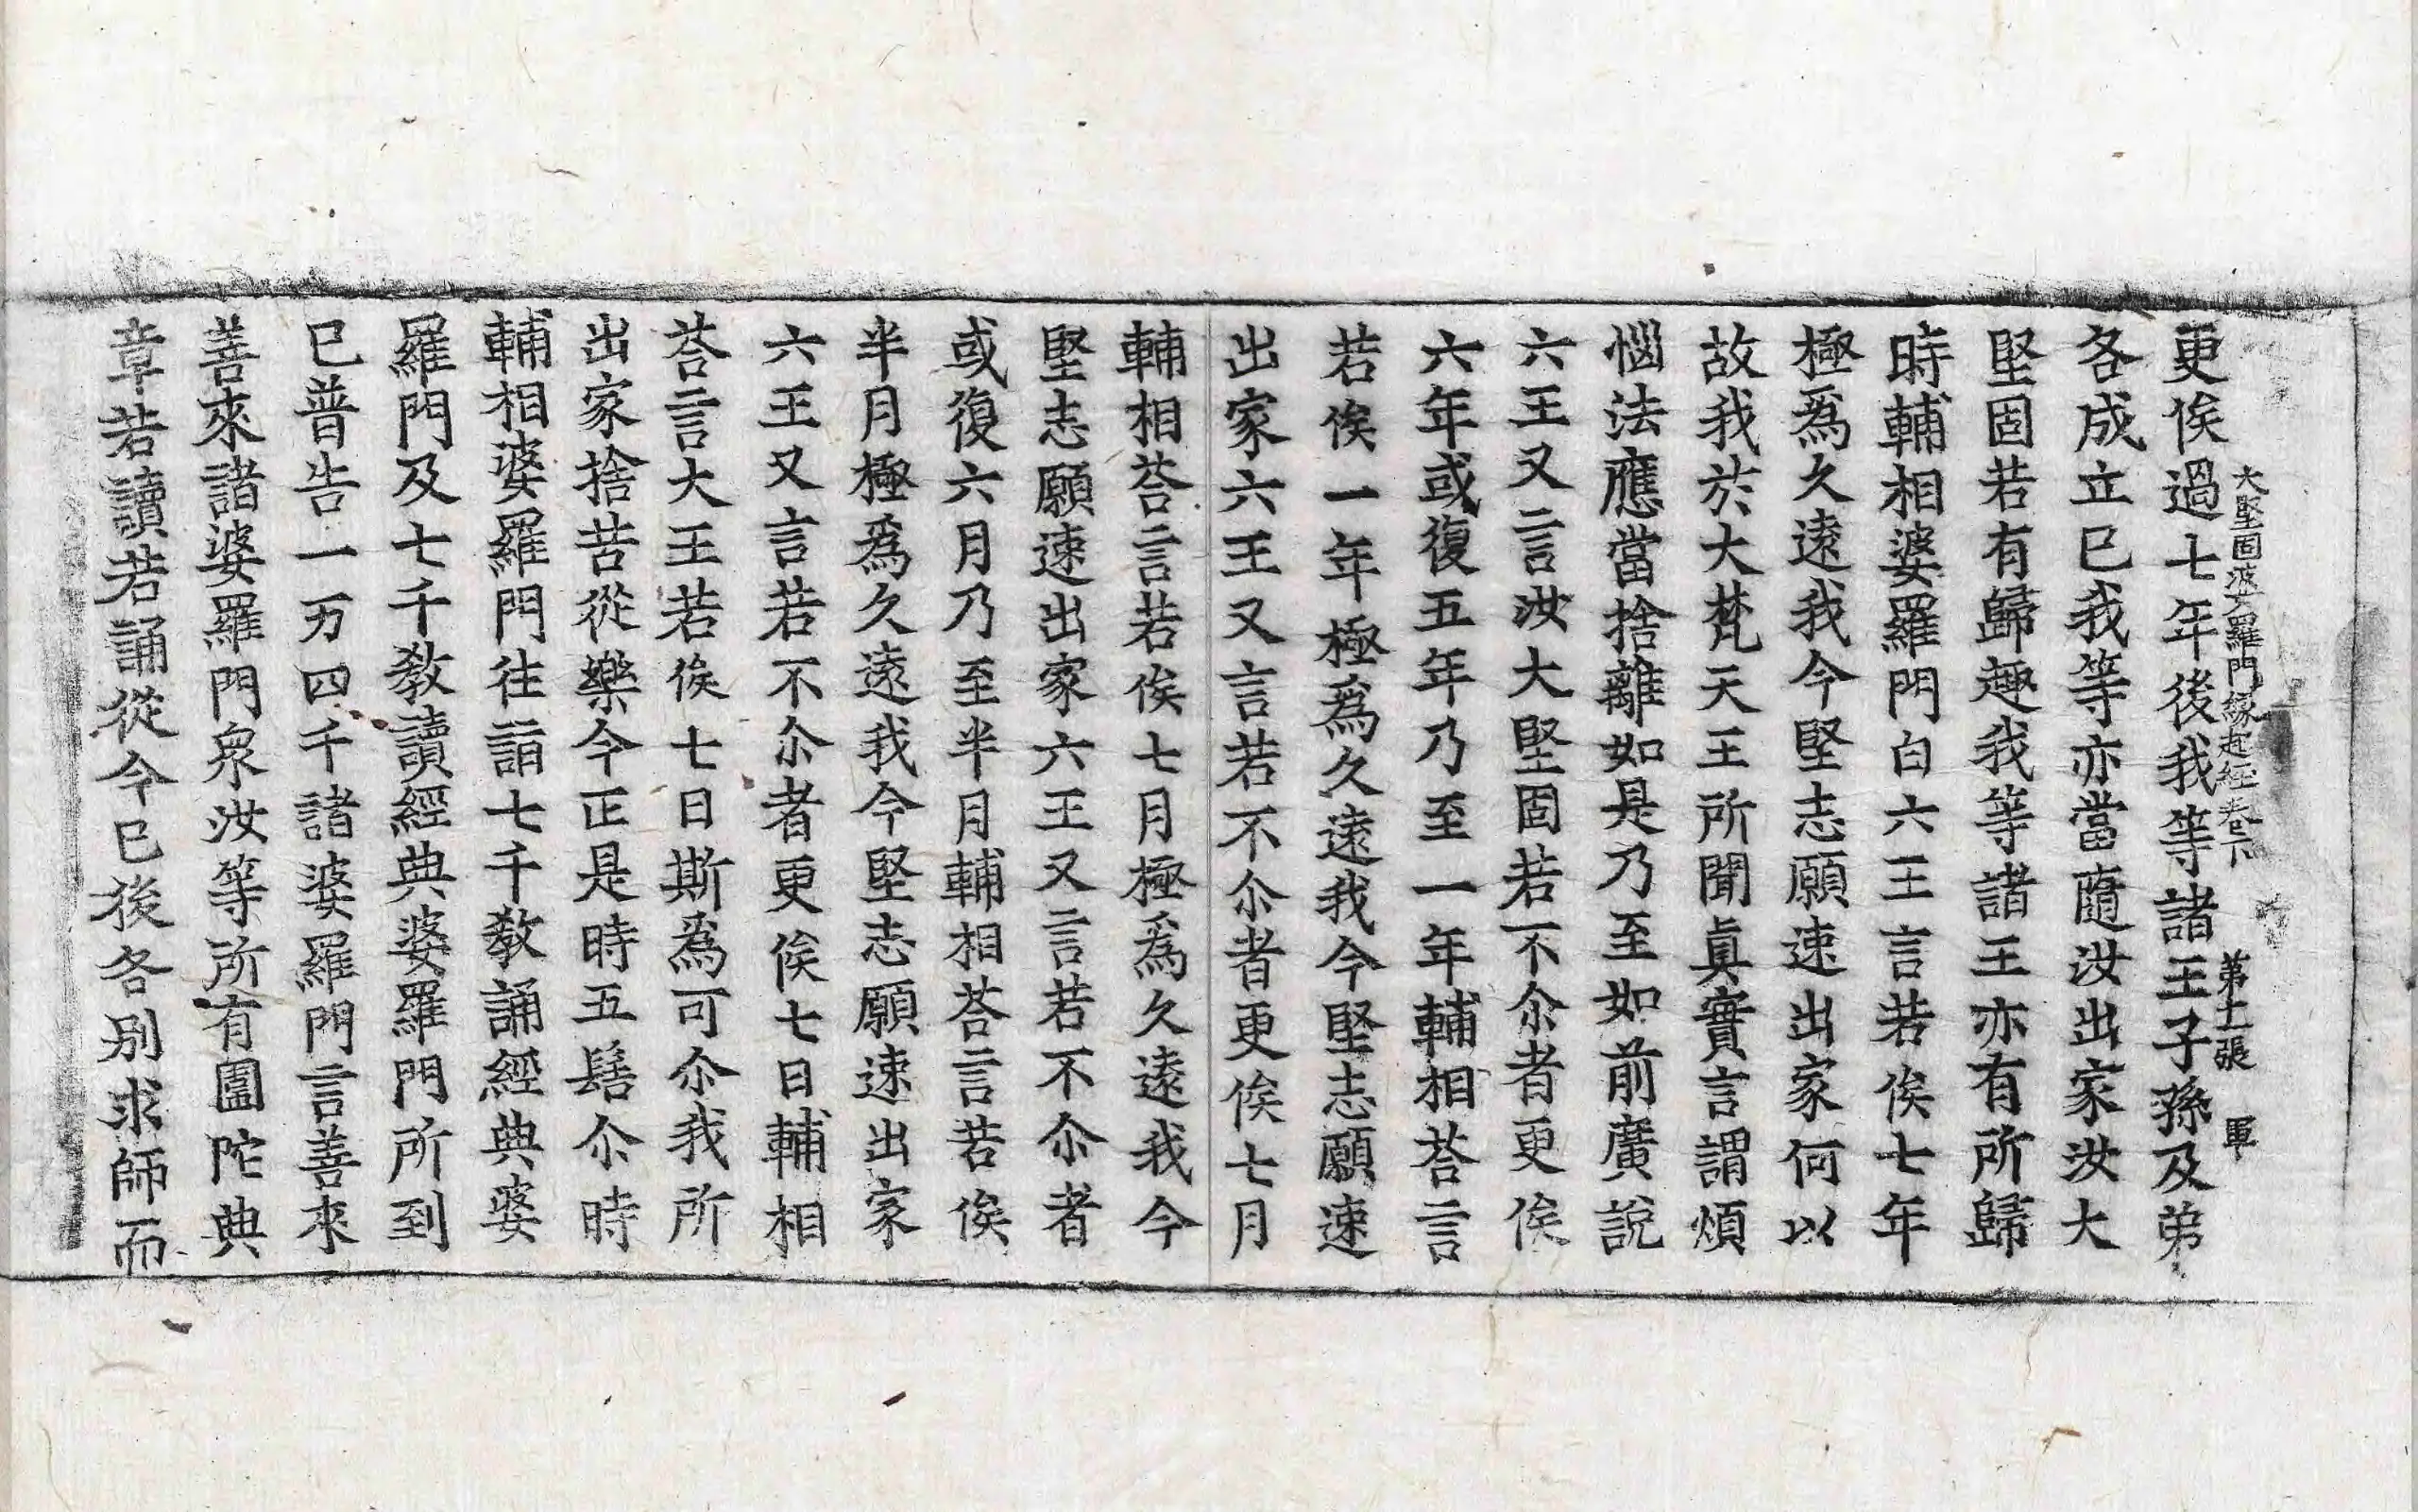 大堅固婆羅門緣起經卷下 第十二張 軍
更俟過七年後我等諸王子孫及弟
各成立已我等亦當隨汝出家汝大
堅固若有歸趣我等諸王亦有所歸
時輔相婆羅門白六王言若俟七年
極爲久遠我今堅志願速出家何以
故我於大梵天王所聞眞實言謂煩
惱法應當捨離如是乃至如前廣說
六王又言汝大堅固若不尒者更俟
六年或復五年乃至一年輔相荅言
若俟一年極爲久遠我今堅志願速
出家六王又言若不尒者更俟七月
輔相荅言若俟七月極爲久遠我今
堅志願速出家六王又言若不尒者
或復六月乃至半月輔相荅言若俟
半月極爲久遠我今堅志願速出家
六王又言若不尒者更俟七日輔相
荅言大王若俟七日斯爲可尒我所
出家捨苦從樂今正是時五髻尒時
輔相婆羅門往詣七千敎誦經典婆
羅門及七千敎讀經典婆羅門所到
已普告一万四千諸婆羅門言善來
善來諸婆羅門衆汝等所有圍陀典
章若讀若誦從今已後各別求師而